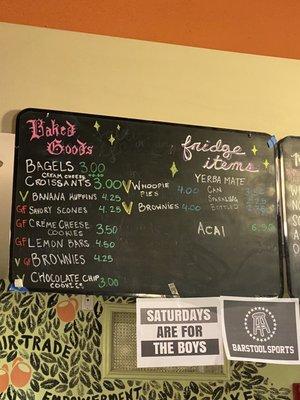 Baked
Goods
BAGELS 3.00
CREAM CHEESE
CROISSANTS 3.00
V BANANA MUFFINS 4.25
GF SAVORY SCONES 4.25
GF CRÈME CHEESE
COOKIES 3.50
GF LEMON BARS 4.50
V GF BROWNIES 4.25
V CHOCOLATE CHIP
COOKIES 3.00
V WHOOPIE
PIES 4.00
V BROWNIES 4.00
fridge
items
YERBA MATE
CAN
SPARKLING
BOTTLED
ACAI
SATURDAYS
ARE FOR
THE BOYS
BARSTOOLSPORTS
IR-TRADE
EMPOWERMENT